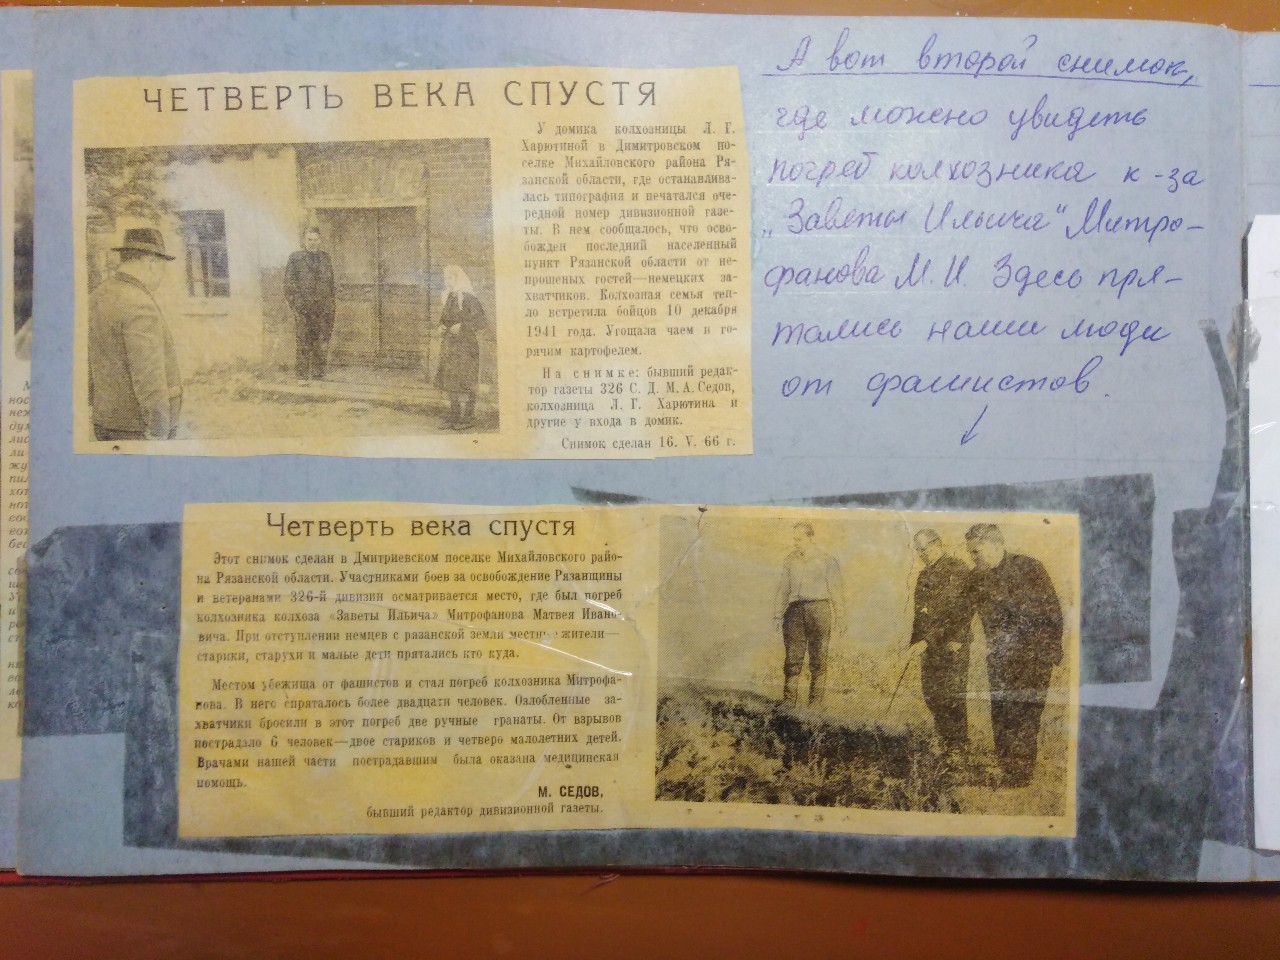 ЧЕТВЕРТЬ ВЕКА СПУСТЯ
У домика колхозницы Л. Г.
Харютиной в Димитровском по-
селке Михайловского района Ря-
занской области, где останавлива-
лась типография и печатался оче-
редной номер дивизионной газе-
ты. В нем сообщалось, что осво-
божден последний населенный
пункт Рязанской области от не-
прошеных гостей—немецких за-
хватчиков. Колхозная семья теп-
ло встретила бойцов 10 декабря
1941 года. Угощала чаем и го-
рячим картофелем.
На снимке: бывший редак-
тор газеты 326 С. Д. М. А. Седов,
колхозница Л. Г. Харютина и
другие у входа в домик.
Снимок сделан 16. V. 66 г.
А вот второй снимок,
где можно увидеть
погреб колхозника к-за
„Заветы Ильича" Митро-
фанова М. И. Здесь пря-
тались наши люди
от фашистов.
Четверть века спустя
Этот снимок сделан в Дмитриевском поселке Михайловского райо-
на Рязанской области. Участниками боев за освобождение Рязанщины
и ветеранами 326-й дивизии осматривается место, где был погреб
колхозника колхоза «Заветы Ильича» Митрофанова Матвея Ивано-
вича. При отступлении немцев с рязанской земли местные жители—
старики, старухи и малые дети прятались кто куда.
Местом убежища от фашистов и стал погреб колхозника Митрофа-
нова. В него спряталось более двадцати человек. Озлобленные за-
хватчики бросили в этот погреб две ручные гранаты. От взрывов
пострадало 6 человек—двое стариков и четверо малолетних детей.
Врачами нашей части пострадавшим была оказана медицинская
помощь.
М. СЕДОВ,
бывший редактор дивизионной газеты.